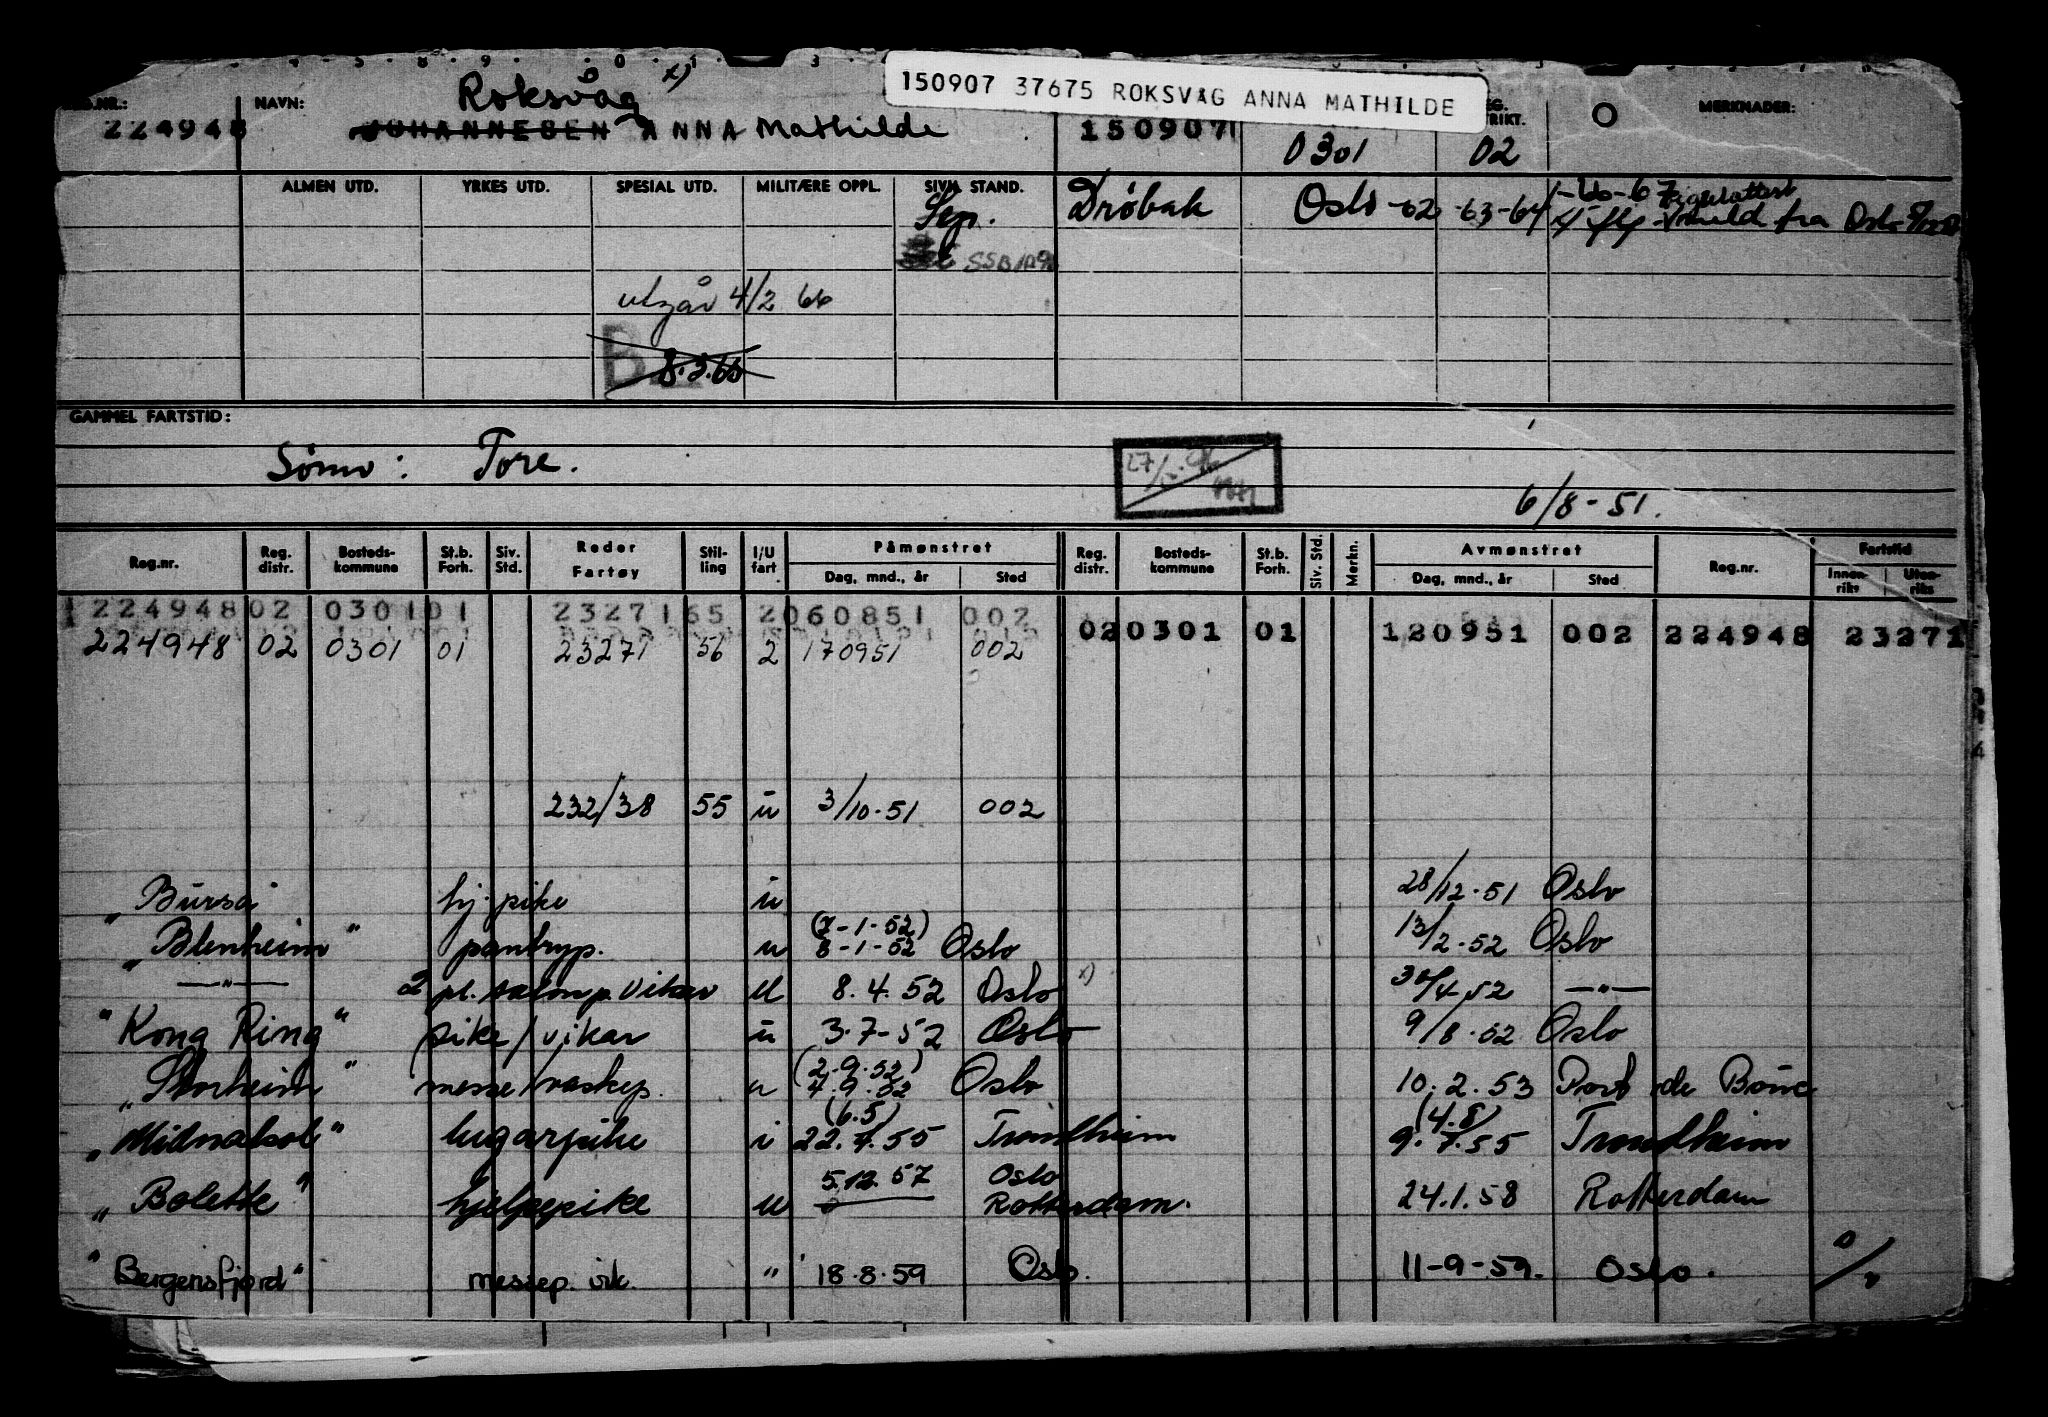 150907 37675 ROKSVÅG ANNA MATHILDE
NAVN: Roksvåg x) MERKNADER:
224948 JOHANNESEN ANNA Mathilde 150907
0301 02
ALMEN UTD. YRKES UTD. SPESIAL UTD. MILITÆRE OPPL. SIVIL STAND.
Sep. Drøbak Oslo -62 -63-64 -66-67
fra Oslo
utgår 4/2 66
GAMMEL FARTSTID:
Sønn: Tore.
6/8-51.
Reg.nr. Reg. distr. Bosteds-kommune St.b. Forh. Siv. Std. Reder Fartøy Stil-ling I/U fart Påmønstret Dag, mnd., år Sted Reg. distr. Bosteds-kommune St.b. Forh. Siv. Std. Merkn. Avmønstret Dag, mnd., år Sted Reg.nr. Fartstid Innen-riks Uten-riks
224948 02 0301 01 23271 65 2 060851 002
020301 01 120951 002 224948 23271
224948 02 0301 01 23271 56 2 170951 002
232/38 55 u 3/10.51 002
"Bursa" hj.pike u 28/12.51 Oslo
"Blenheim" pantryp. u (7-1-52) 8-1-52 Oslo 13/2.52 Oslo
—"— 2 pl. salonp. vikar u 8.4.52 Oslo x) 30/4 52 —"—
"Kong Ring" pike/vikar u 3.7-52 Oslo 9/8.52 Oslo
"Storheim" messe/vaskep. u (2.9.52) 4.9.52 Oslo 10.2.53 Port de Bouc
"Midnatsol" lugarpike i (6.5) 22.7.55 Trondheim (4.8) 9.7.55 Trondheim
"Bolette" hjelpepike u 5.12.57 Oslo Rotterdam. 24.1.58 Rotterdam
"Bergensfjord" messep. vik. " 18.8.59 Oslo. 11-9-59. Oslo.